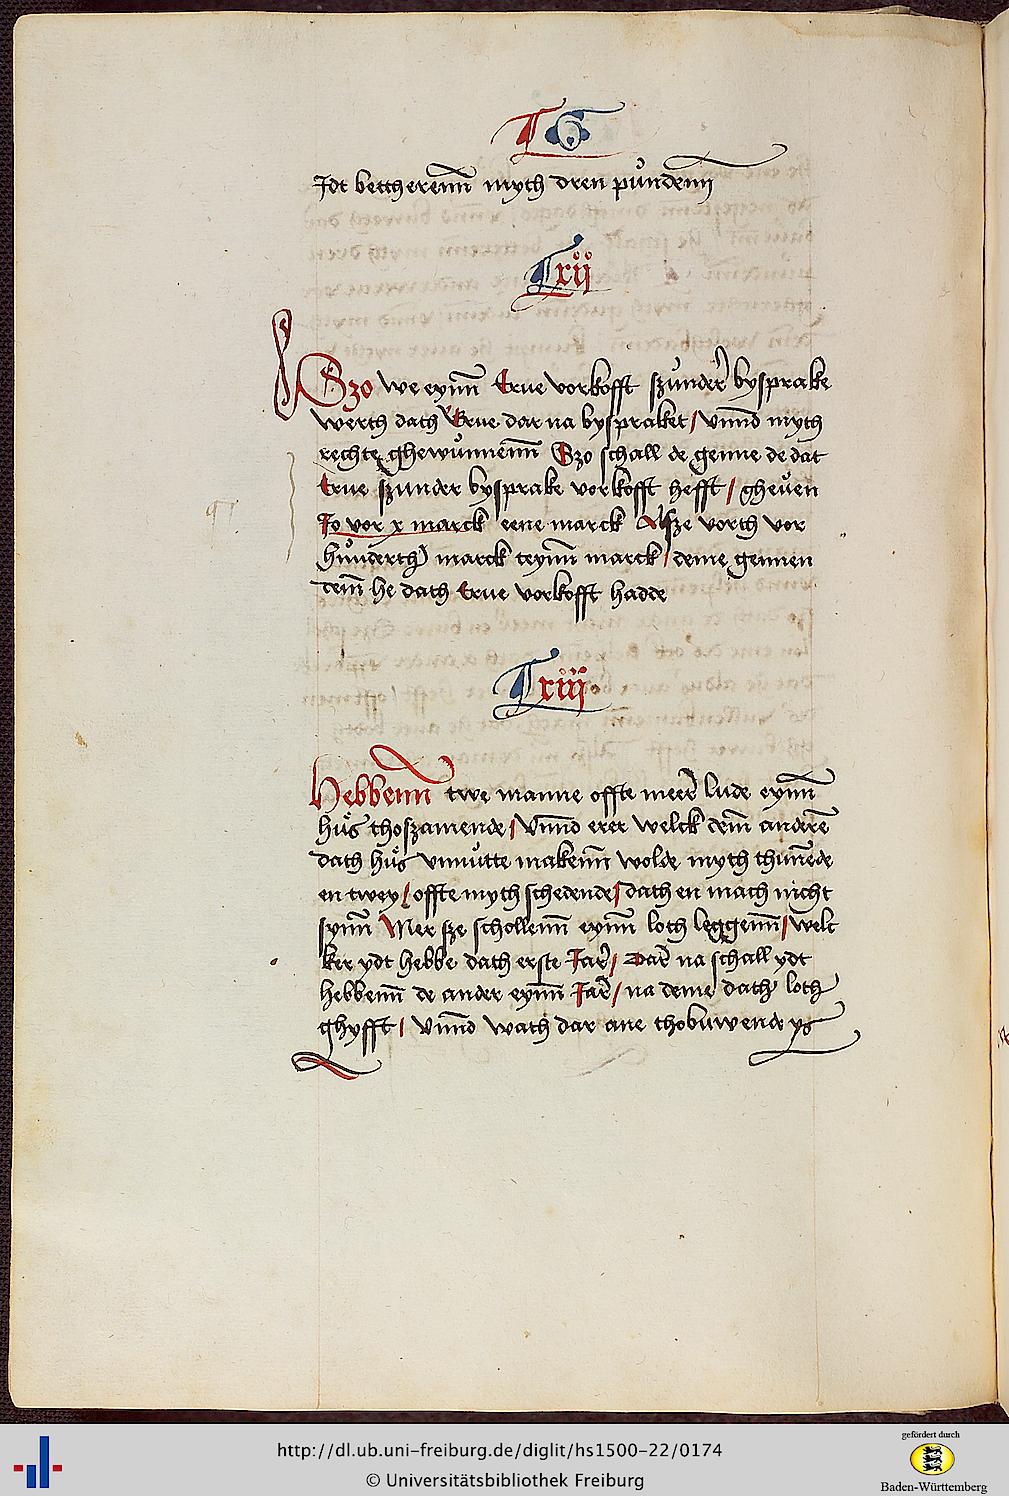 T G
Jdt bettherenn myth dren pundenn
Txij
Szo we eynn erue vorkofft szunder bysprake
werth dath Erue dar na byspraket / vnnd myth
rechte ghewunnenn Szo schall de genne de dat
Erue szunder bysprake vorkofft hefft / gheuen
Jo vor x marck eene marck Alsze vorth vor
hunderth marck teynn marck / deme gennen
demm he dath Erue vorkofft hadde
Txiij
Hebbenn twe manne offte meer lude eynn
hus thoszamende / vnnd erer welck demm anderen
dath hus vnnutte makenn wolde myth thunede
en twey / offte myth schedende / dath en mach nicht
synn Mer sze schollenn eynn loth leggenn / welc
ker ydt hebbe dath erste Jar / Dar na schall ydt
hebbenn de ander eynn Jar / na deme dath loth
ghyfft / vnnd wath dar ane thobuwende ys
http://dl.ub.uni-freiburg.de/diglit/hs1500-22/0174
© Universitätsbibliothek Freiburg
gefördert durch
Baden-Württemberg